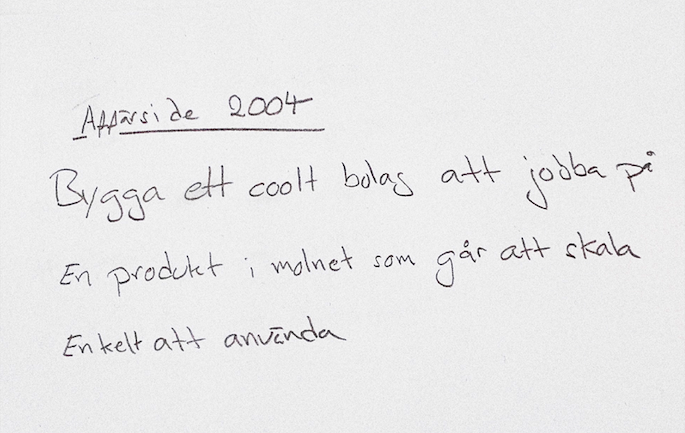 Affärside 2004
Bygga ett coolt bolag att jobba på
En produkt i molnet som går att skala
Enkelt att använda